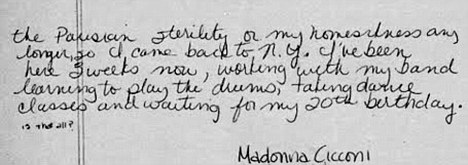 the Parisian sterility or my homesickness any
longer, so I came back to N.Y. I've been
here 3 weeks now, working with my band
learning to play the drums, taking dance
classes and waiting for my 20th birthday.
is that all?
Madonna Cicconi